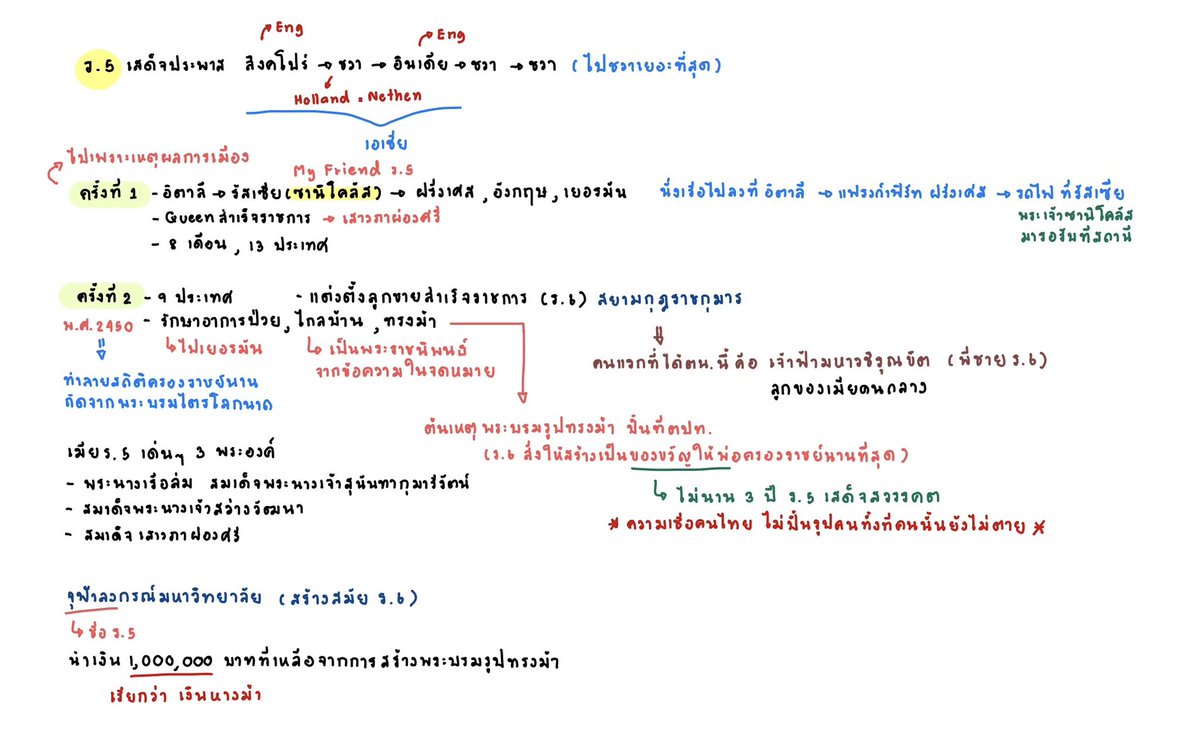 Eng
Eng
ร.5 เสด็จประพาส สิงคโปร์ → ชวา → อินเดีย → ชวา → ชวา (ไปชวาเยอะที่สุด)
Holland = Nethen
เอเชีย
ไปเพราะเหตุผลการเมือง
My Friend ร.5
ครั้งที่ 1 - อิตาลี → รัสเซีย (ซานิโคลัส) → ฝรั่งเศส, อังกฤษ, เยอรมัน นั่งเรือไปลงที่ อิตาลี → แฟรงก์เฟิร์ท ฝรั่งเศส → รถไฟ ที่รัสเซีย
- Queen สำเร็จราชการ → เสาวภาผ่องศรี
พระเจ้าซานิโคลัส
มารอรับที่สถานี
- 8 เดือน, 13 ประเทศ
ครั้งที่ 2 - 9 ประเทศ - แต่งตั้งลูกชายสำเร็จราชการ (ร.6) สยามกุฎราชกุมาร
พ.ศ.2450 - รักษาอาการป่วย, ไกลบ้าน, ทรงม้า
↳ ไปเยอรมัน ↳ เป็นพระราชนิพนธ์
จากข้อความในจดหมาย
คนแรกที่ได้ตน.นี้ คือ เจ้าฟ้ามหาวชิรุณหิต (พี่ชาย ร.6)
ลูกของเมียคนกลาง
ทำลายสถิติครองราชย์นาน
ถัดจากพระบรมไตรโลกนาถ
ต้นเหตุ พระบรมรูปทรงม้า ปั้นที่ตปท.
(ร.6 สั่งให้สร้างเป็นของขวัญให้พ่อครองราชย์นานที่สุด)
↳ ไม่นาน 3 ปี ร.5 เสด็จสวรรคต
* ความเชื่อคนไทย ไม่ปั้นรูปคนทั้งที่คนนั้นยังไม่ตาย *
เมีย ร.5 เด่นๆ 3 พระองค์
- พระนางเรือล่ม สมเด็จพระนางเจ้าสุนันทากุมารีรัตน์
- สมเด็จพระนางเจ้าสว่างวัฒนา
- สมเด็จ เสาวภาผ่องศรี
จุฬาลงกรณ์มหาวิทยาลัย (สร้างสมัย ร.6)
↳ ชื่อ ร.5
นำเงิน 1,000,000 บาทที่เหลือจากการสร้างพระบรมรูปทรงม้า
เรียกว่า เงินหางม้า